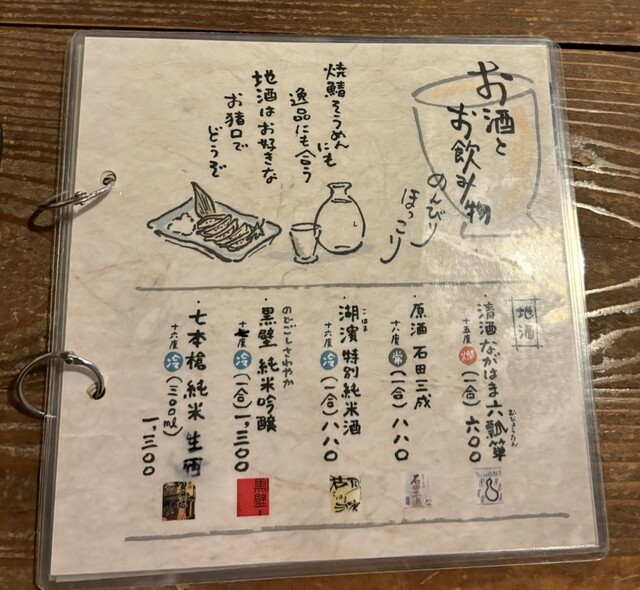 お酒と
お飲み物
のんびり
ほっこり
焼鯖そうめん
にも
逸品にも合う
地酒はお好きな
お猪口で
どうぞ
地酒
・清酒ながはま六瓢箪
むびょうたん
十五度 燗 (一合) 六〇〇
・原酒 石田三成
十八度 常 (一合) 八八〇
こはま
・湖濱 特別純米酒
十六度 冷 (一合) 八八〇
のどごしさわやか
・黒壁 純米吟醸
十七度 冷 (一合) 一、三〇〇
黒壁
・七本槍 純米 生酒
十六度 冷 (三〇〇ml) 一、三〇〇